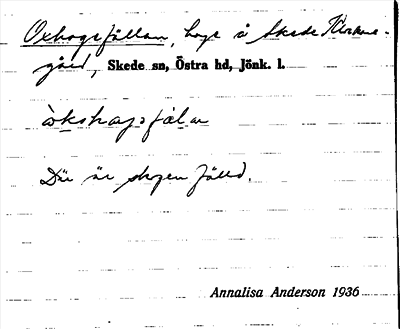 Oxhagsfällan, hage å Skede Klockare-
gård, Skede sn, Östra hd, Jönk. l.
òkshagsfälan
Där är skogen fälld.
Annalisa Anderson 1936